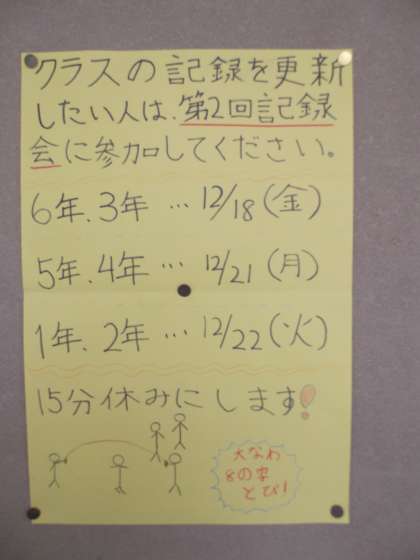 クラスの記録を更新
したい人は、第2回記録
会に参加してください。
6年、3年 … 12/18(金)
5年、4年 … 12/21(月)
1年、2年 … 12/22(火)
15分休みにします!
大なわ
8の字
とび!